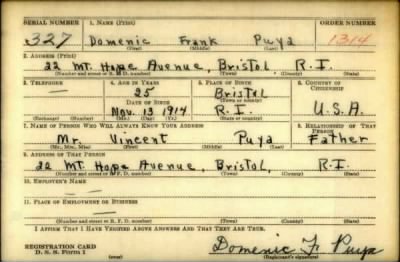 SERIAL NUMBER 1. NAME (Print) ORDER NUMBER
327 Domenic Frank Puya 1314
(First) (Middle) (Last)
2. ADDRESS (Print)
22 Mt. Hope Avenue, Bristol R.I.
(Number and street or R. F. D. number) (Town) (County) (State)
3. TELEPHONE 4. AGE IN YEARS 5. PLACE OF BIRTH 6. COUNTRY OF CITIZENSHIP
25 Bristol
(Town or county)
DATE OF BIRTH
Nov. 13 1914 R.I. U.S.A.
(Exchange) (Number) (Mo.) (Day) (Yr.) (State or country)
7. NAME OF PERSON WHO WILL ALWAYS KNOW YOUR ADDRESS 8. RELATIONSHIP OF THAT PERSON
Mr. Vincent Puya Father
(Mr., Mrs., Miss) (First) (Middle) (Last)
9. ADDRESS OF THAT PERSON
22 Mt. Hope Avenue, Bristol, R.I.
(Number and street or R. F. D. number) (Town) (County) (State)
10. EMPLOYER'S NAME
11. PLACE OF EMPLOYMENT OR BUSINESS
(Number and street or R. F. D. number) (Town) (County) (State)
I AFFIRM THAT I HAVE VERIFIED ABOVE ANSWERS AND THAT THEY ARE TRUE.
REGISTRATION CARD
D. S. S. Form 1 (over) Domenic F. Puya
(Registrant's signature)